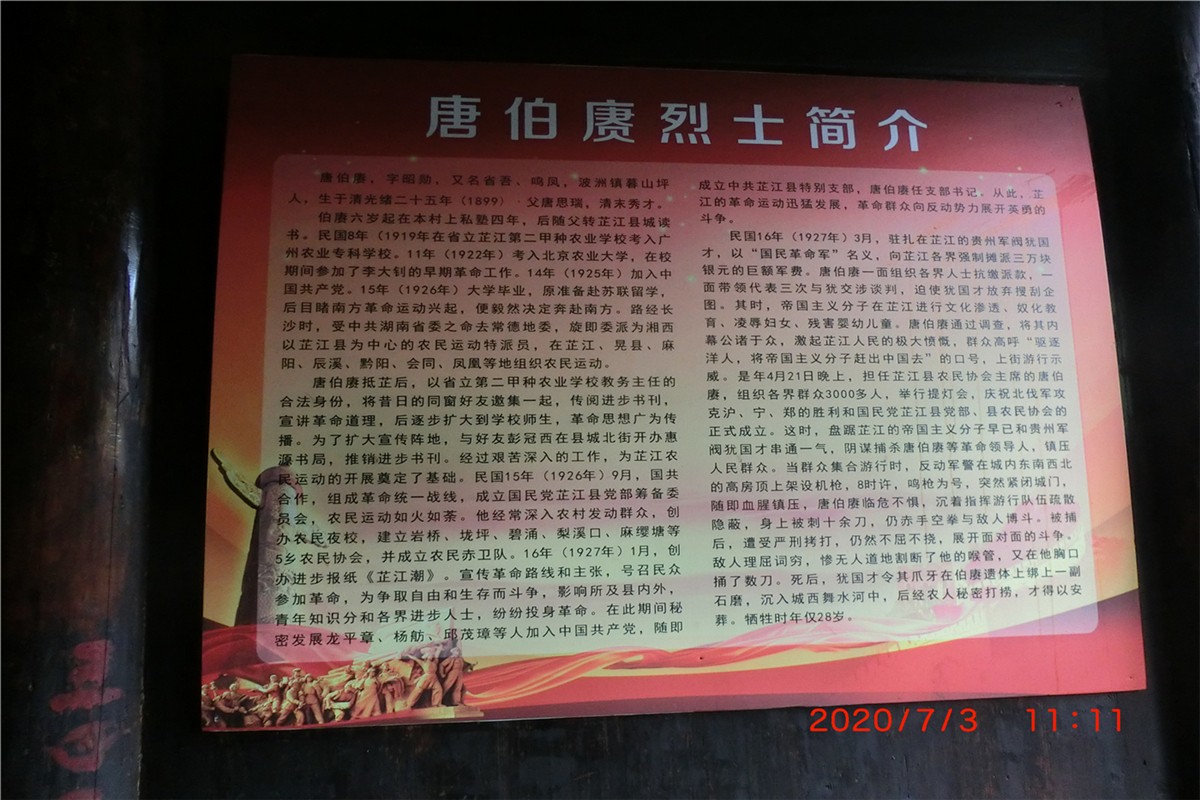 唐伯赓烈士简介
唐伯赓，字昭勋，又名省吾、鸣凤，波洲镇暮山坪
人，生于清光绪二十五年（1899）·父唐思瑞，清末秀才。
伯赓六岁起在本村上私塾四年，后随父转芷江县城读
书。民国8年（1919年在省立芷江第二甲种农业学校考入广
州农业专科学校。11年（1922年）考入北京农业大学，在校
期间参加了李大钊的早期革命工作。14年（1925年）加入中
国共产党。15年（1926年）大学毕业，原准备赴苏联留学，
后目睹南方革命运动兴起，便毅然决定奔赴南方。路经长
沙时，受中共湖南省委之命去常德地委，旋即委派为湘西
以芷江县为中心的农民运动特派员，在芷江、晃县、麻
阳、辰溪、黔阳、会同、凤凰等地组织农民运动。
唐伯赓抵芷后，以省立第二甲种农业学校教务主任的
合法身份，将昔日的同窗好友邀集一起，传阅进步书刊，
宣讲革命道理，后逐步扩大到学校师生，革命思想广为传
播。为了扩大宣传阵地，与好友彭冠西在县城北街开办惠
源书局，推销进步书刊。经过艰苦深入的工作，为芷江农
民运动的开展奠定了基础。民国15年（1926年）9月，国共
合作，组成革命统一战线，成立国民党芷江县党部筹备委
员会，农民运动如火如荼。他经常深入农村发动群众，创
办农民夜校，建立岩桥、垅坪、碧涌、梨溪口、麻缨塘等
5乡农民协会，并成立农民赤卫队。16年（1927年）1月，创
办进步报纸《芷江潮》。宣传革命路线和主张，号召民众
参加革命，为争取自由和生存而斗争，影响所及县内外，
青年知识分和各界进步人士，纷纷投身革命。在此期间秘
密发展龙平章、杨舫、邱茂璋等人加入中国共产党，随即
成立中共芷江县特别支部，唐伯赓任支部书记。从此，芷
江的革命运动迅猛发展，革命群众向反动势力展开英勇的
斗争。
民国16年（1927年）3月，驻扎在芷江的贵州军阀犹国
才，以“国民革命军”名义，向芷江各界强制摊派三万块
银元的巨额军费。唐伯赓一面组织各界人士抗缴派款，一
面带领代表三次与犹交涉谈判，迫使犹国才放弃搜刮企
图。其时，帝国主义分子在芷江进行文化渗透、奴化教
育、凌辱妇女、残害婴幼儿童。唐伯赓通过调查，将其内
幕公诸于众，激起芷江人民的极大愤慨，群众高呼“驱逐
洋人，将帝国主义分子赶出中国去”的口号，上街游行示
威。是年4月21日晚上，担任芷江县农民协会主席的唐伯
赓，组织各界群众3000多人，举行提灯会，庆祝北伐军攻
克沪、宁、郑的胜利和国民党芷江县党部、县农民协会的
正式成立。这时，盘踞芷江的帝国主义分子早已和贵州军
阀犹国才串通一气，阴谋捕杀唐伯赓等革命领导人，镇压
人民群众。当群众集合游行时，反动军警在城内东南西北
的高房顶上架设机枪，8时许，鸣枪为号，突然紧闭城门，
随即血腥镇压，唐伯赓临危不惧，沉着指挥游行队伍疏散
隐蔽，身上被刺十余刀，仍赤手空拳与敌人博斗。被捕
后，遭受严刑拷打，仍然不屈不挠，展开面对面的斗争、
敌人理屈词穷，惨无人道地割断了他的喉管，又在他胸口
捅了数刀。死后，犹国才令其爪牙在伯赓遗体上绑上一副
石磨，沉入城西舞水河中，后经农人秘密打捞，才得以安
葬。牺牲时年仅28岁。
2020/7/3 11:11